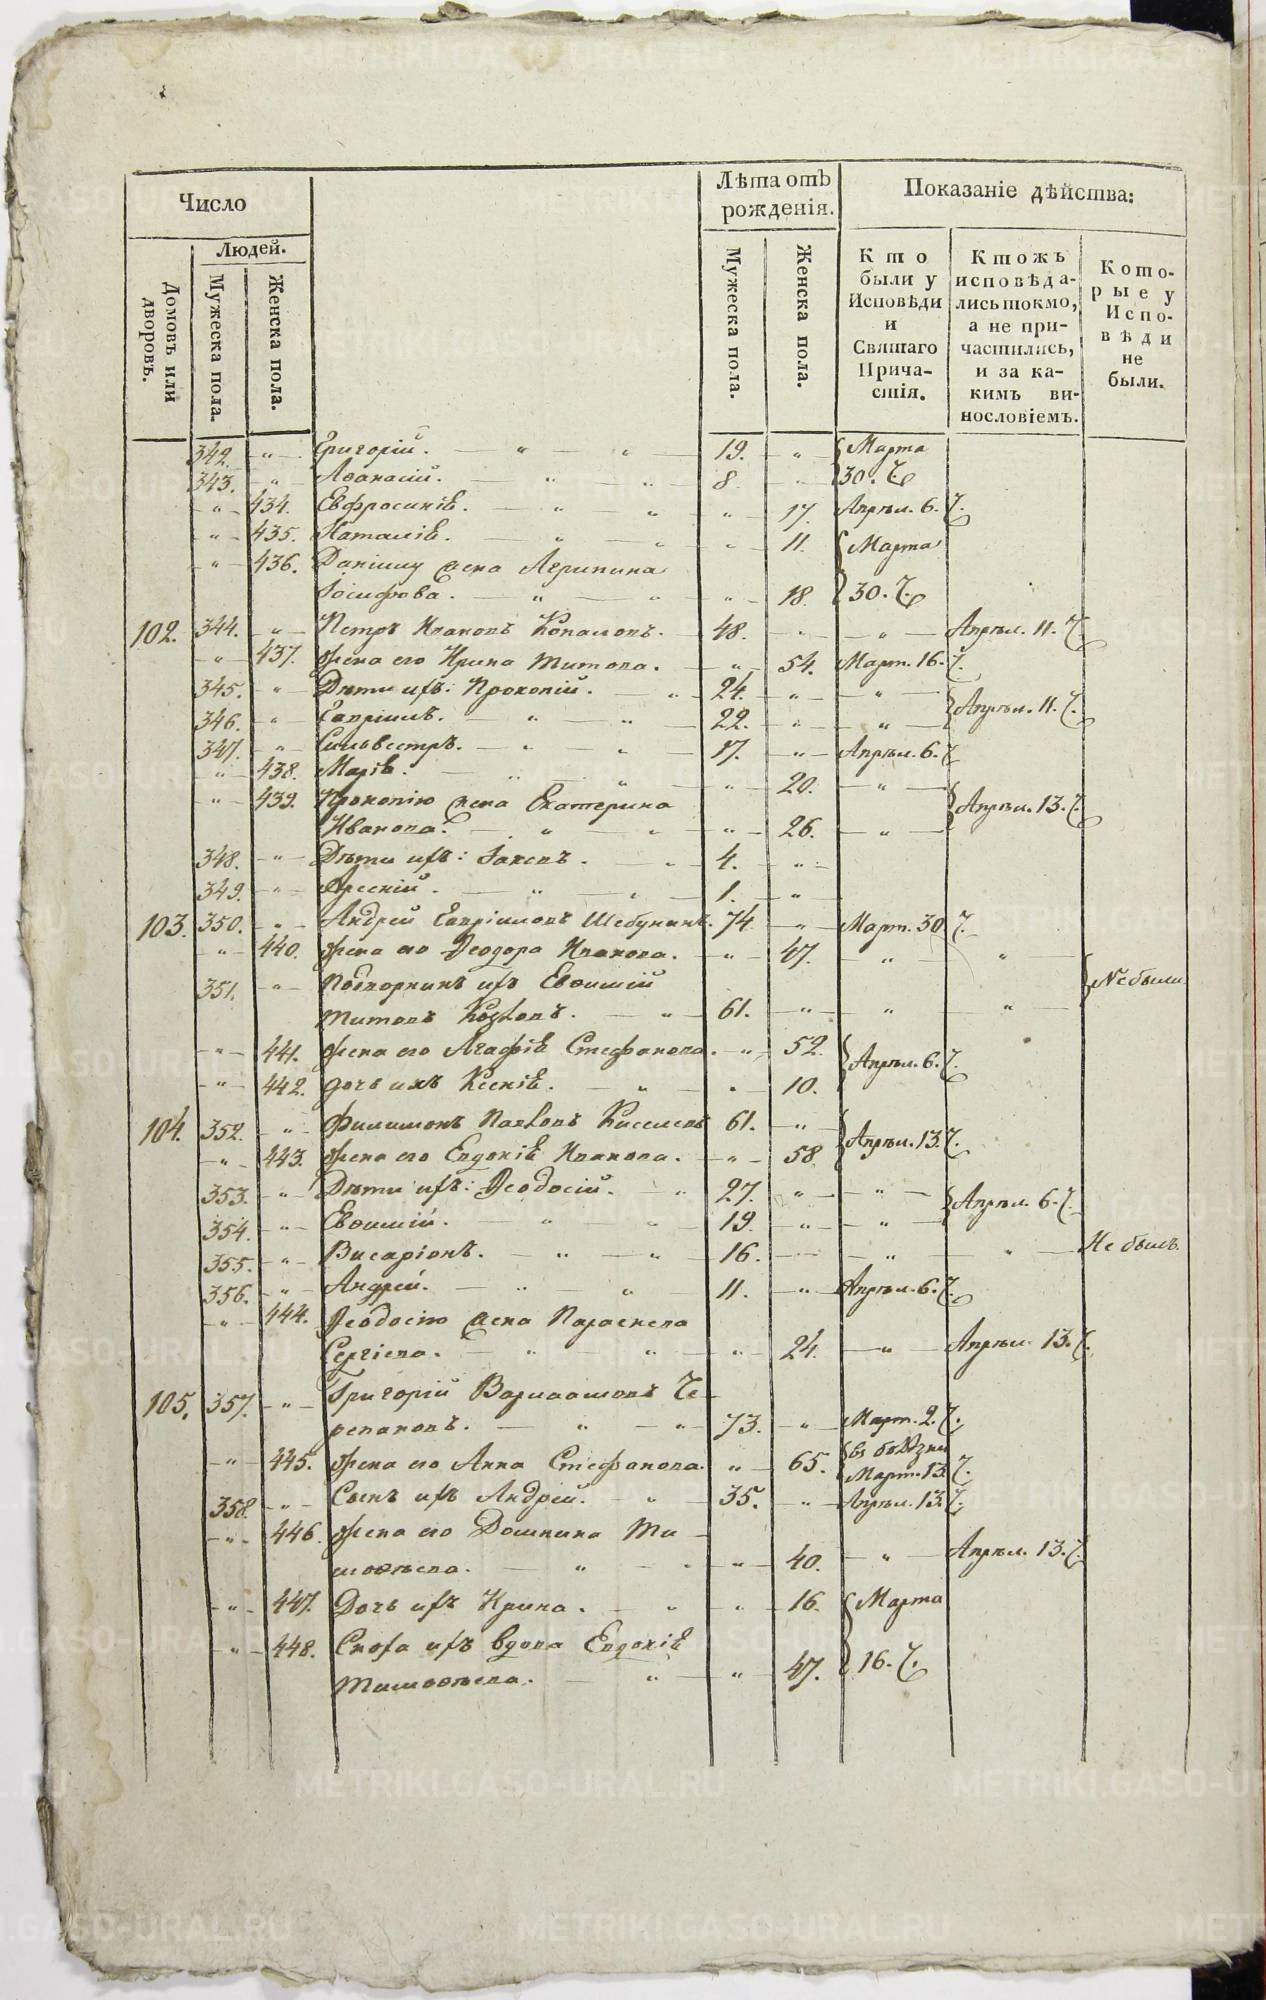 Число
Лѣта отъ рожденія.
Показаніе дѣйства:
Людей.
Домовъ или дворовъ.
Мужеска пола.
Женска пола.
Мужеска пола.
Женска пола.
Кто были у Исповѣди и Святаго Причастія.
Ктожъ исповѣдались токмо, а не причастились, и за какимъ винословіемъ.
Которые у Исповѣди не были.
342. Григорій. 19. Марта
343. Аѳанасій. 8. 30. Ч.
434. Евфросинія. 17. Апрѣл. 6. Ч.
435. Наталія. 11. Марта
436. Даніилу жена Агрипина
Іосифова. 18. 30. Ч.
102. 344. Петръ Ивановъ 48. Апрѣл. 11. Ч.
437. жена его Ирина Титова. 54. Март. 16. Ч.
345. Дѣти ихъ: Прокопій. 24. Апрѣл. 11. Ч.
346. Гавріилъ. 22.
347. Сильвестръ. 17. Апрѣл. 6. Ч.
438. Марія. 20.
439. Прокопію жена Екатерина Апрѣл. 13. Ч.
Иванова. 26.
348. Дѣти ихъ: Іаковъ. 4.
349. Арсеній. 1.
103. 350. Андрей Гавріиловъ Шебунинъ. 74. Март. 30. Ч.
440. жена его Ѳеодора Иванова. 47. Не были
351. ихъ Евѳимій
Титовъ Козловъ. 61.
441. жена его Агафія Стефанова. 52. Апрѣл. 6. Ч.
442. дочь ихъ Ксенія. 10.
104. 352. Филимонъ Павловъ Киселевъ 61. Апрѣл. 13. Ч.
443. жена его Евдокія Иванова. 58
353. Дѣти ихъ: Ѳеодосій. 27. Апрѣл. 6. Ч.
354. Евѳимій. 19.
355. Висаріонъ. 16. Не былъ.
356. Андрей. 11. Апрѣл. 6. Ч.
444. Ѳеодосію жена Параскева
Сергіева. 24. Апрѣл. 13. Ч.
105. 357. Григорій Варлаамовъ Че-
репановъ. 73. Март. 2. Ч.
445. жена его Анна Стефанова. 65. въ болѣзни Март. 13. Ч.
358. Сынъ ихъ Андрей. 35. Апрѣл. 13. Ч.
446. жена его Домнина Ти-
моѳѣева. 40. Апрѣл. 13. Ч.
447. Дочь ихъ Ирина. 16. Марта
448. Сноха ихъ вдова Евдокія
Тимоѳѣева. 47. 16. Ч.
METRIKI.GASO-URAL.RU